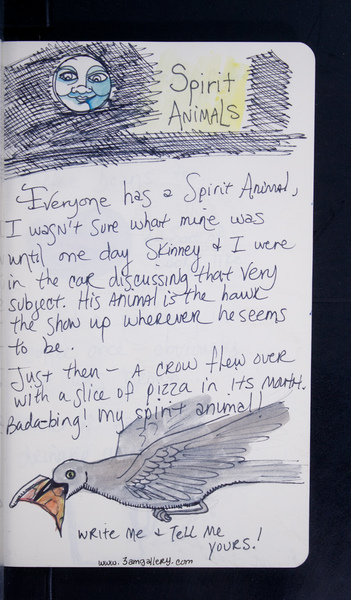 Spirit
ANIMALS
Everyone has a Spirit Animal,
I wasn't sure what mine was
until one day Skinney & I were
in the car discussing that very
subject. His ANIMAL is the hawk
the show up wherever he seems
to be.
Just then - A crow flew over
with a slice of pizza in its mouth.
Bada-bing! My spirit animal!
write me & Tell Me
YOURS!
www.3amgallery.com